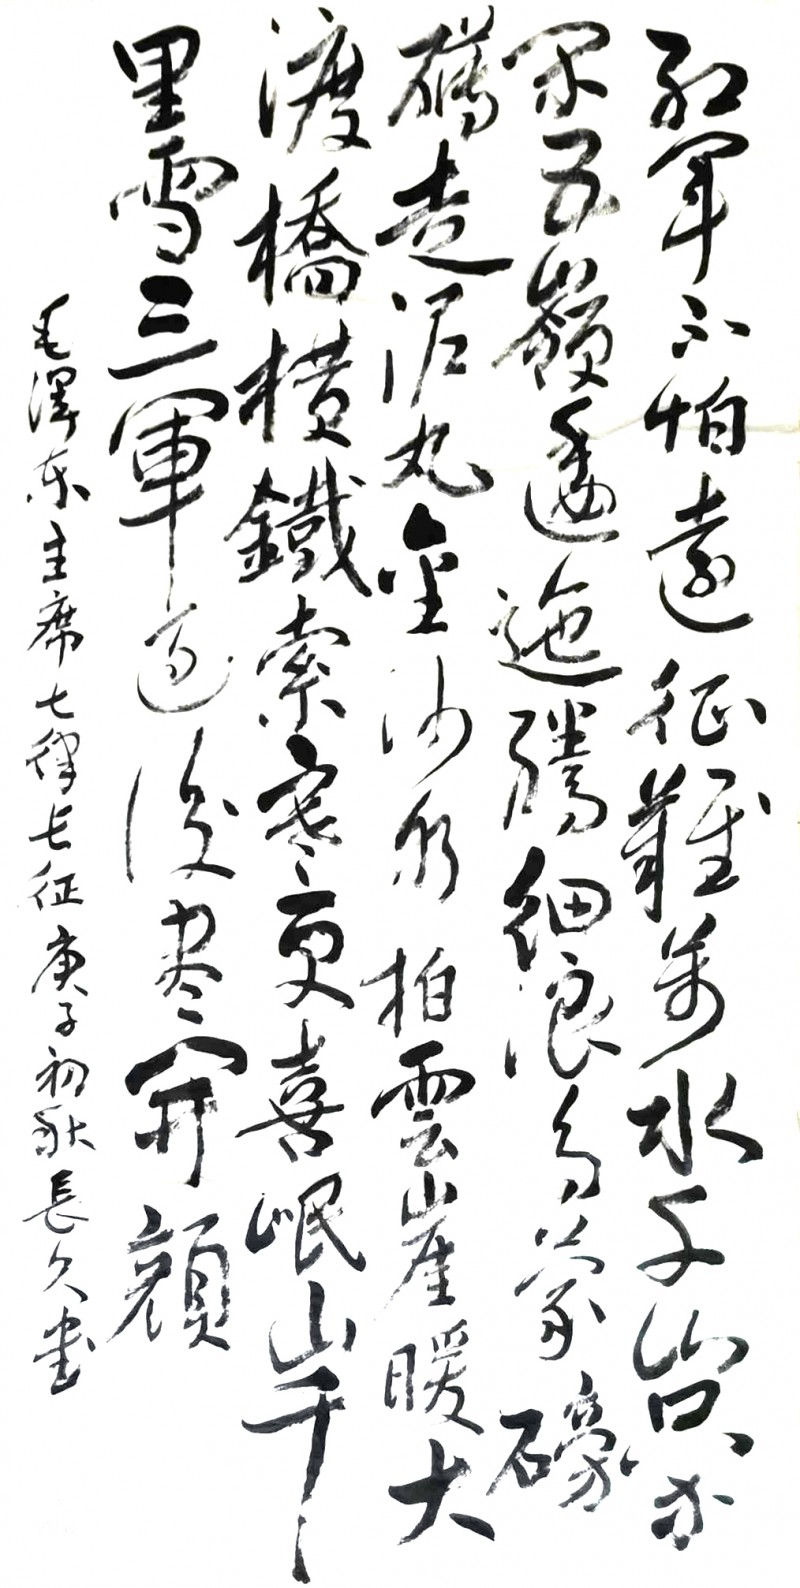 红军不怕遠征難萬水千山只等
闲五嶺逶迤騰細浪烏蒙磅
礴走泥丸金沙水拍雲崖暖大
渡橋横鐵索寒更喜岷山千
里雪三軍过後尽開顏
毛澤东主席七律长征庚子初秋長久书